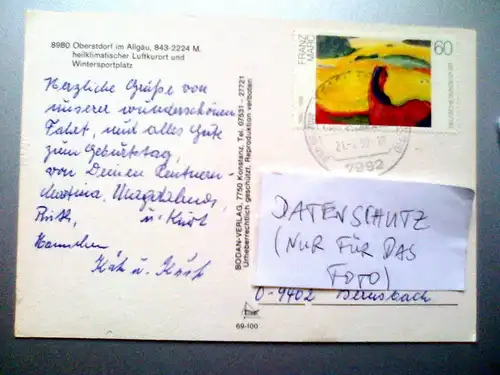 8980 Oberstdorf im Allgäu, 843-2224 M.
heilklimatischer Luftkurort und
Wintersportplatz
Herzliche Grüße von
unserer wunderschönen
Fahrt, und alles Gute
zum Geburtstag,
von Deinen
Martina, Magdalena,
Ruth, u. Kurt
Hannchen
Käth u.
BODAN-VERLAG, 7750 Konstanz, Tel. 07531 - 27721
Urheberrechtlich geschützt. Reproduktion verboten
69-100
FRANZ
MARC
60
DEUTSCHE BUNDESPOST
7992
DATENSCHUTZ
(NUR FÜR DAS
FOTO)
O-9402 Bernsbach